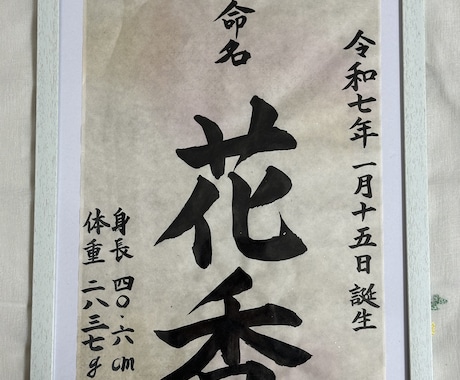 命名
令和七年 一月十五日 誕生
花香
身長 四〇・六cm
体重 二八三七g